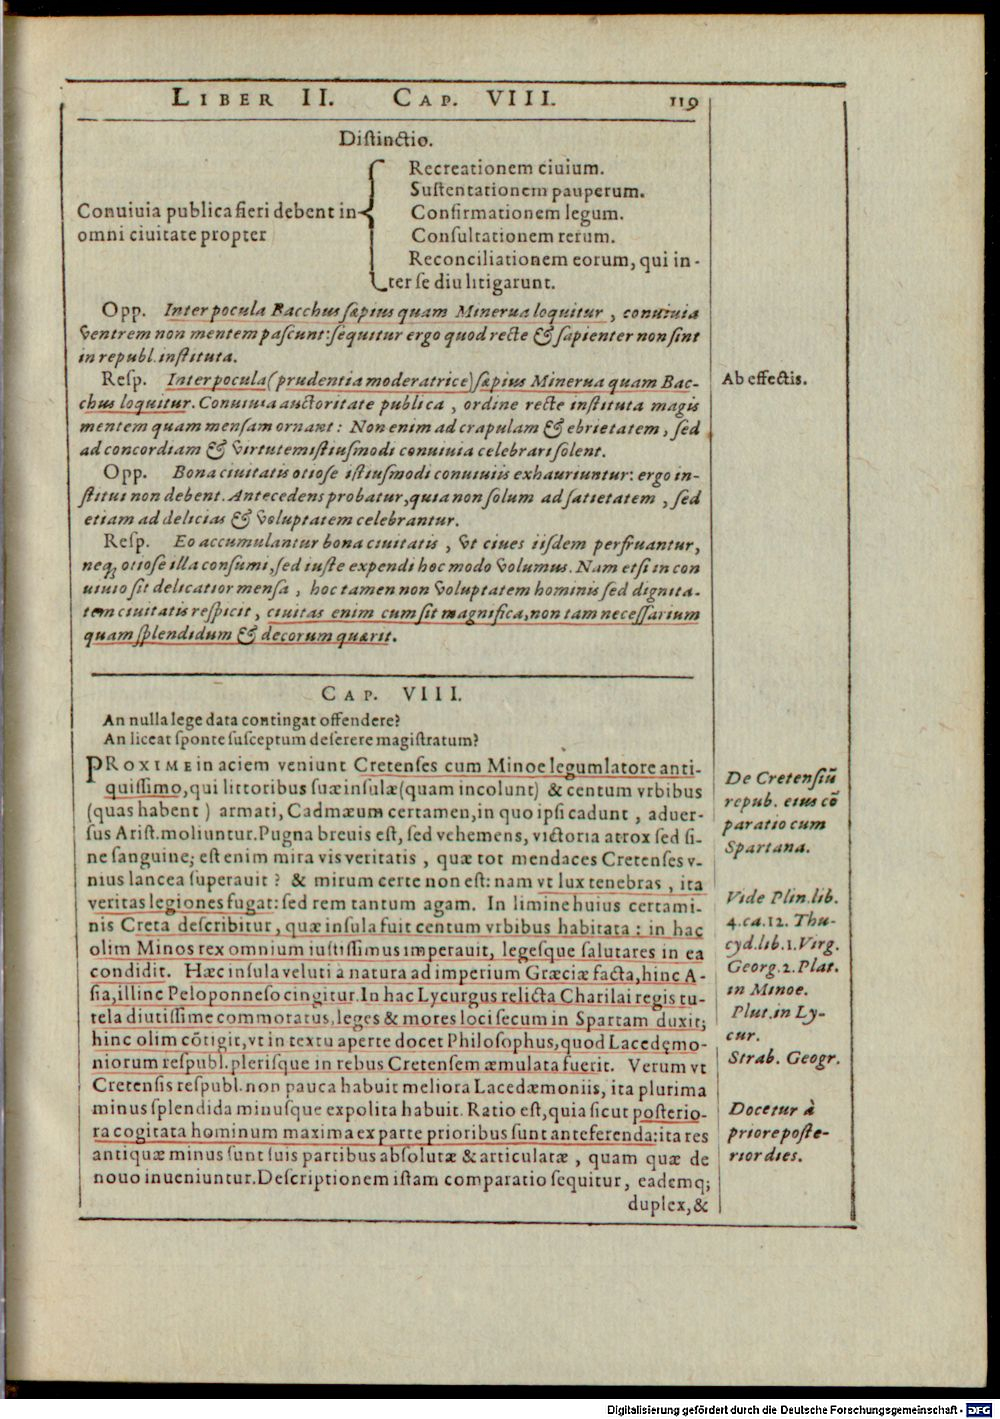 LIBER II. CAP. VIII. 119
Diſtinctio.
Conuiuia publica fieri debent in
omni ciuitate propter
Recreationem ciuium.
Suſtentationem pauperum.
Confirmationem legum.
Conſultationem rerum.
Reconciliationem eorum, qui in-
ter ſe diu litigarunt.
Opp. Inter pocula Bacchus ſæpius quam Minerua loquitur, conuiuia
ventrem non mentem paſcunt: ſequitur ergo quod recte & ſapienter non ſint
in republ. inſtituta.
Reſp. Inter pocula (prudentia moderatrice) ſæpius Minerua quam Bac-
chus loquitur. Conuiuia auctoritate publica, ordine recte inſtituta magis
mentem quam menſam ornant: Non enim ad crapulam & ebrietatem, ſed
ad concordiam & virtutem iſtiuſmodi conuiuia celebrari ſolent.
Ab effectis.
Opp. Bona ciuitatis otioſe iſtiuſmodi conuiuiis exhauriuntur: ergo in-
ſtitui non debent. Antecedens probatur, quia non ſolum ad ſatietatem, ſed
etiam ad delicias & voluptatem celebrantur.
Reſp. Eo accumulantur bona ciuitatis, vt ciues iiſdem perfruantur,
neq; otioſe illa conſumi, ſed iuſte expendi hoc modo volumus. Nam etſi in con
uiuio ſit delicatior menſa, hoc tamen non voluptatem hominis ſed dignita-
tem ciuitatis reſpicit, ciuitas enim cum ſit magnifica, non tam neceſſarium
quam ſplendidum & decorum quærit.
CAP. VIII.
An nulla lege data contingat offendere?
An liceat ſponte ſuſceptum deſerere magiſtratum?
PROXIME in aciem veniunt Cretenſes cum Minoe legumlatore anti-
quiſſimo, qui littoribus ſuæ inſulæ (quam incolunt) & centum vrbibus
(quas habent) armati, Cadmæum certamen, in quo ipſi cadunt, aduer-
ſus Ariſt. moliuntur. Pugna breuis eſt, ſed vehemens, victoria atrox ſed ſi-
ne ſanguine; eſt enim mira vis veritatis, quæ tot mendaces Cretenſes v-
nius lancea ſuperauit? & mirum certe non eſt: nam vt lux tenebras, ita
veritas legiones fugat: ſed rem tantum agam. In limine huius certami-
nis Creta deſcribitur, quæ inſula fuit centum vrbibus habitata: in hac
olim Minos rex omnium iuſtiſſimus imperauit, legeſque ſalutares in ea
condidit. Hæc inſula veluti à natura ad imperium Græciæ facta, hinc A-
ſia, illinc Peloponneſo cingitur. In hac Lycurgus relicta Charilai regis tu-
tela diutiſſime commoratus, leges & mores loci ſecum in Spartam duxit;
hinc olim cõtigit, vt in textu aperte docet Philoſophus, quod Lacedęmo-
niorum reſpubl. pleriſque in rebus Cretenſem æmulata fuerit. Verum vt
Cretenſis reſpubl. non pauca habuit meliora Lacedæmoniis, ita plurima
minus ſplendida minuſque expolita habuit. Ratio eſt, quia ſicut poſterio-
ra cogitata hominum maxima ex parte prioribus ſunt anteferenda: ita res
antiquæ minus ſunt ſuis partibus abſolutæ & articulatæ, quam quæ de
nouo inueniuntur. Deſcriptionem iſtam comparatio ſequitur, eademq;
duplex, &
De Cretenſiũ
repub. eius cõ
paratio cum
Spartana.
Vide Plin. lib.
4. ca. 12. Thu-
cyd. lib. 1. Virg.
Georg. 2. Plat.
in Minoe.
Plut. in Ly-
cur.
Strab. Geogr.
Docetur à
priore poſte-
rior dies.
Digitalisierung gefördert durch die Deutsche Forschungsgemeinschaft - DFG